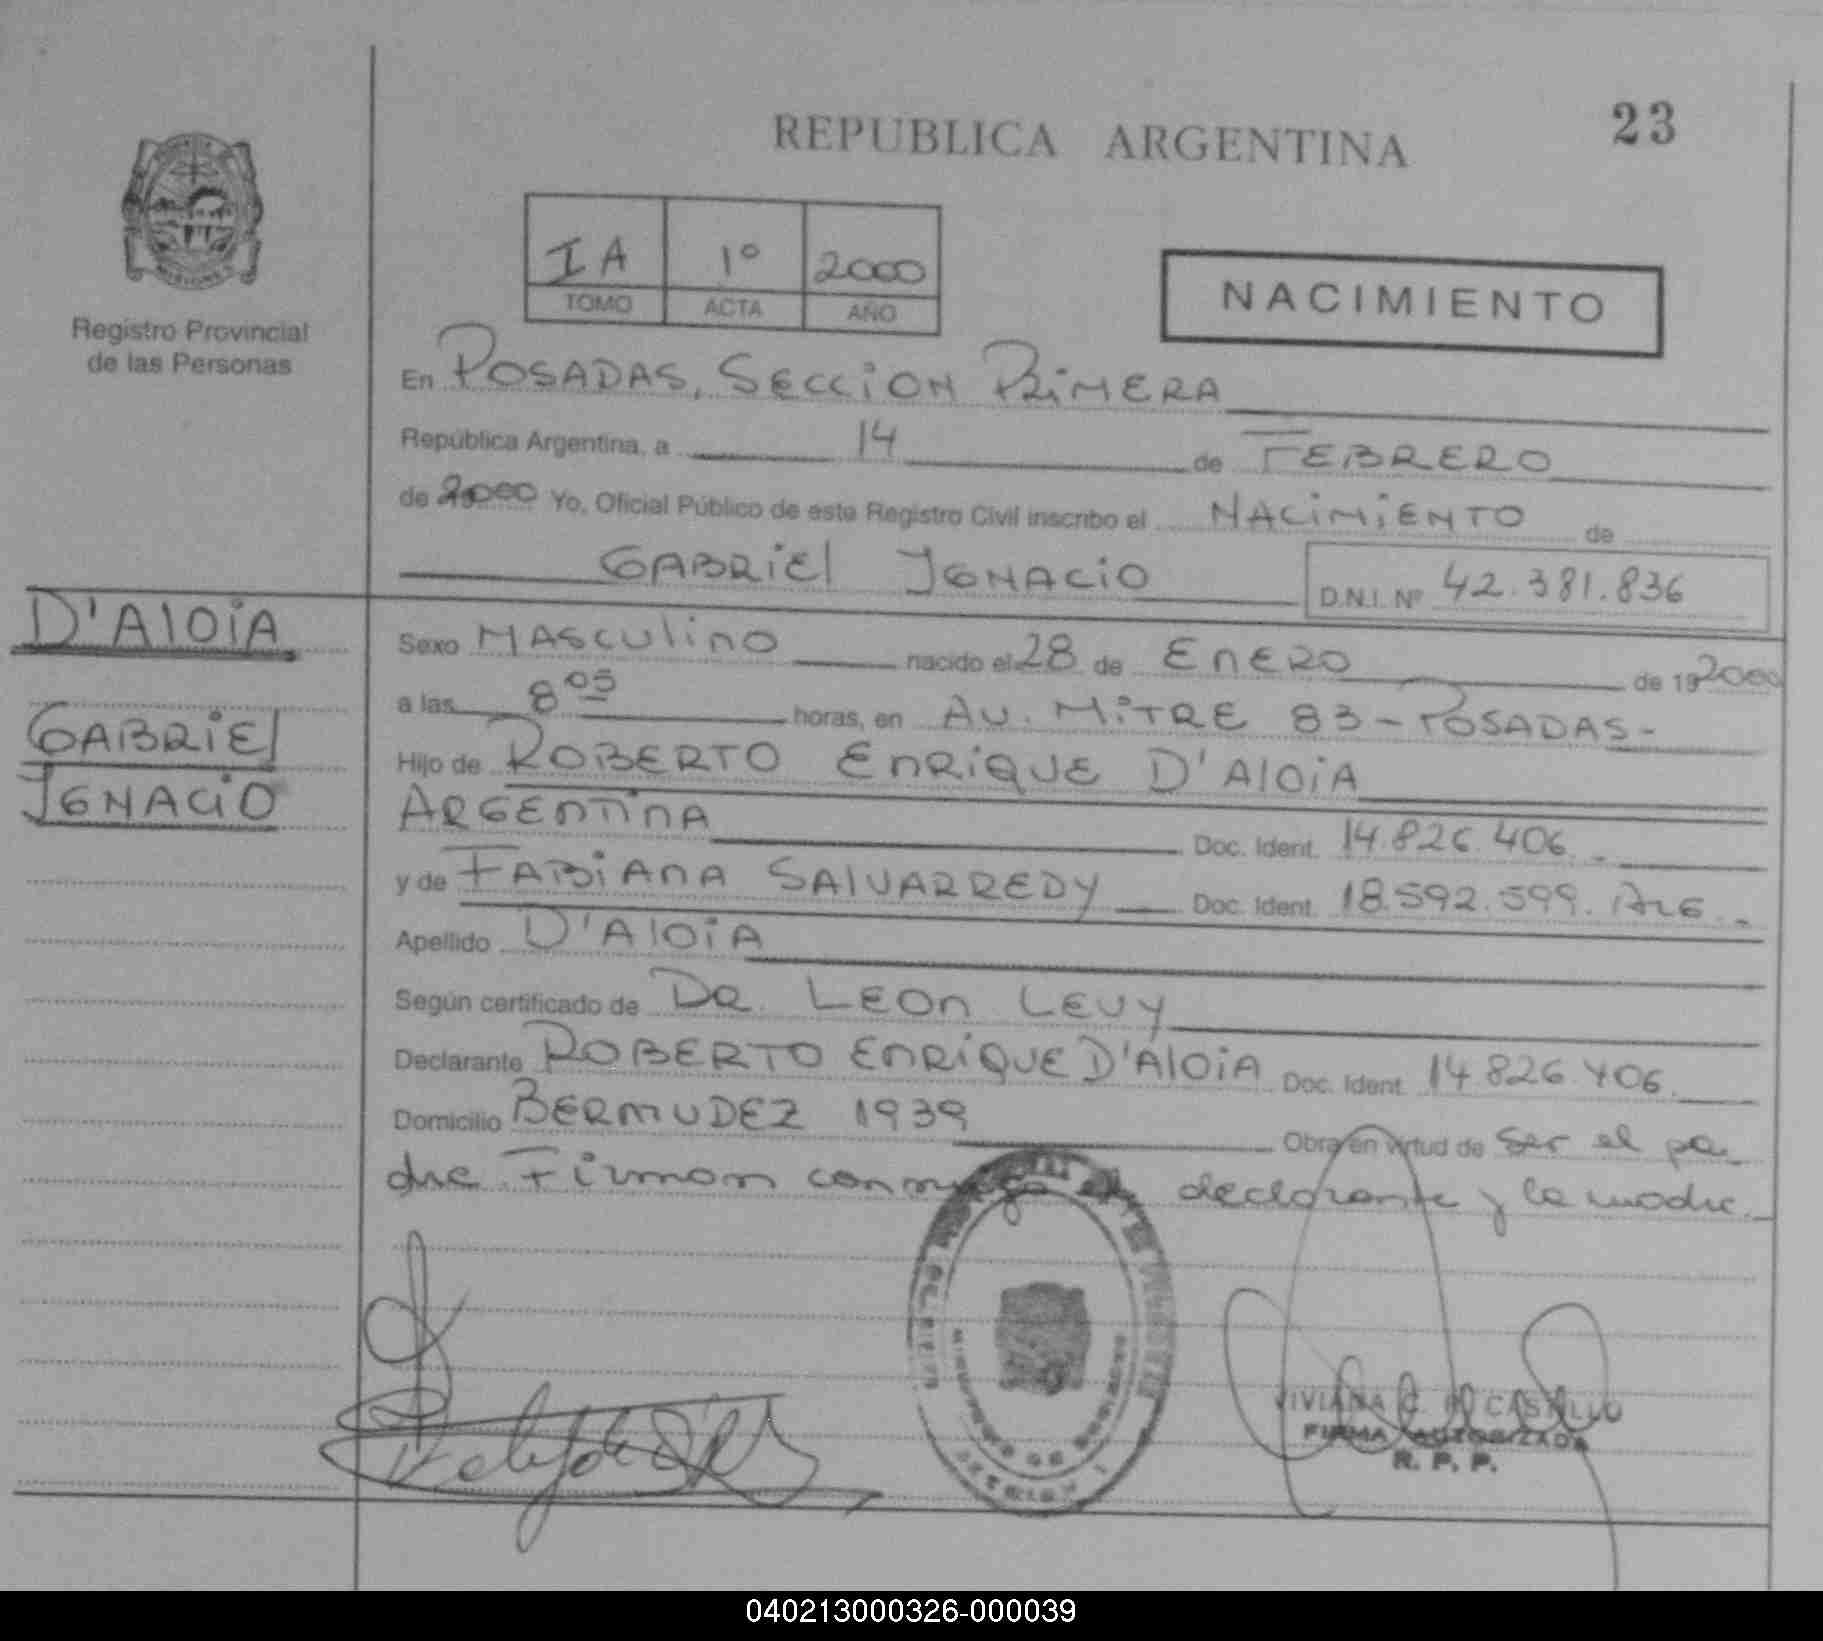 REPUBLICA ARGENTINA
23
Registro Provincial
de las Personas
IA 1º 2000
TOMO ACTA AÑO
NACIMIENTO
En POSADAS, SECCION PRIMERA
República Argentina, a 14 de FEBRERO
de 2000 Yo, Oficial Público de este Registro Civil inscribo el NACIMIENTO de
GABRIEL IGNACIO D.N.I. Nº 42.381.836
D'ALOIA
GABRIEL
IGNACIO
Sexo MASCULINO nacido el 28 de ENERO de 19 2000
a las 8 05 horas, en AV. MITRE 83 - POSADAS -
Hijo de ROBERTO ENRIQUE D'ALOIA
ARGENTINA Doc. Ident. 14.826.406.-
y de FABIANA SALVARREDY Doc. Ident. 18.592.599. ARG.-
Apellido D'ALOIA
Según certificado de DR. LEON LEVY
Declarante ROBERTO ENRIQUE D'ALOIA Doc. Ident. 14.826.406.
Domicilio BERMUDEZ 1939 Obra en virtud de ser el pa-
dre Firman conmigo el declarante y la madre.-
VIVIANA C. CASTILLO
FIRMA AUTORIZADA
R. P. P.
040213000326-000039